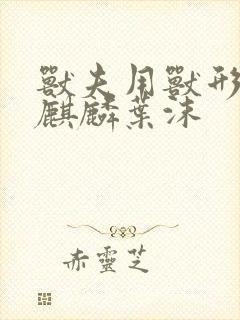 獸夫用獸形
麒麟葉沫
赤靈芝